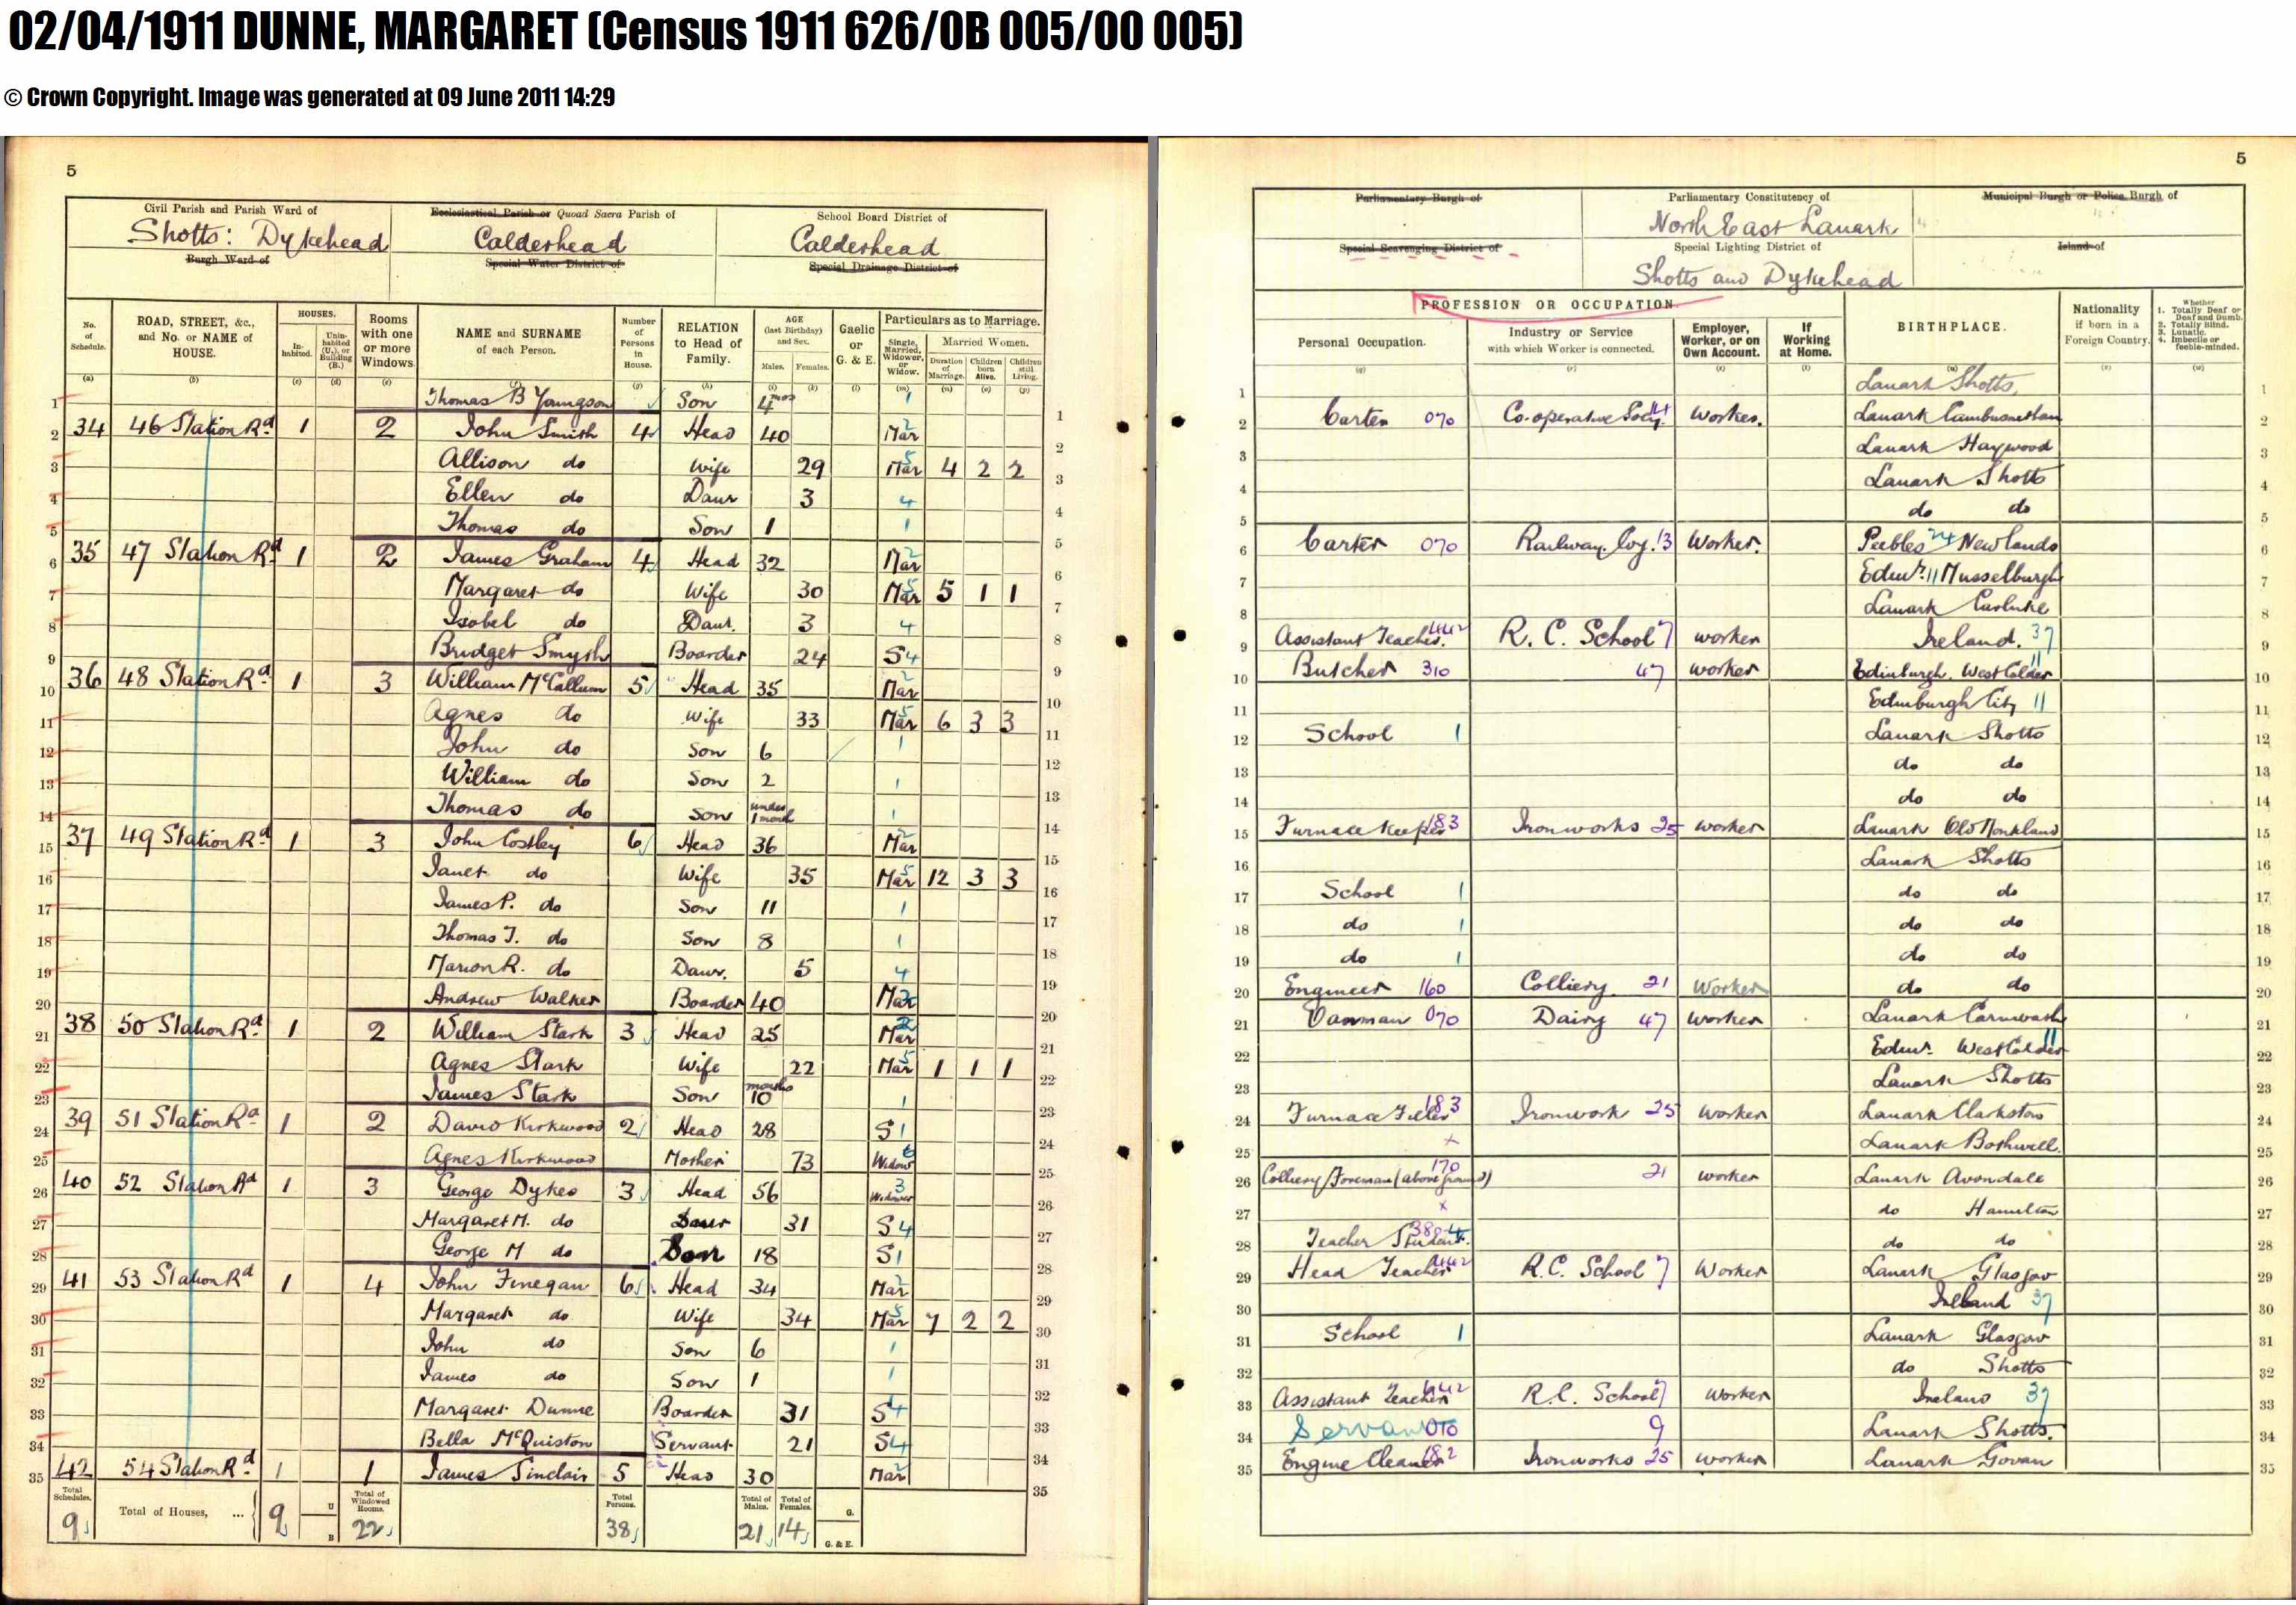 02/04/1911 DUNNE, MARGARET (Census 1911 626/0B 005/00 005)
© Crown Copyright. Image was generated at 09 June 2011 14:29
5
Civil Parish and Parish Ward of
Shotts: Dykehead
Burgh Ward of
Ecclesiastical Parish or Quoad Sacra Parish of
Calderhead
Special Water District of
School Board District of
Calderhead
Special Drainage District of
No. of Schedule. (a)
ROAD, STREET, &c., and No. or NAME of HOUSE. (b)
HOUSES. Inhabited. (c) Uninhabited (U.), or Building (B.) (d)
Rooms with one or more Windows. (e)
NAME and SURNAME of each Person. (f)
Number of Persons in House. (g)
RELATION to Head of Family. (h)
AGE (last Birthday) and Sex. Males. (i) Females. (k)
Gaelic or G. & E. (l)
Particulars as to Marriage. Single, Married, Widower, or Widow. (m)
Married Women. Duration of Marriage. (n) Children born Alive. (o) Children still Living. (p)
1 Thomas B Youngson Son 4 mos 1
2 34 46 Station Rd 1 2 John Smith 4 Head 40 Mar 2
3 Allison do Wife 29 Mar 5 4 2 2
4 Ellen do Daur 3 4
5 Thomas do Son 1 1
6 35 47 Station Rd 1 2 James Graham 4 Head 32 Mar 2
7 Margaret do Wife 30 Mar 5 5 1 1
8 Isobel do Daur. 3 4
9 Bridget Smyth Boarder 24 S 4
10 36 48 Station Rd 1 3 William McCallum 5 Head 35 Mar 2
11 Agnes do Wife 33 Mar 5 6 3 3
12 John do Son 6 1
13 William do Son 2 1
14 Thomas do Son under 1 month 1
15 37 49 Station Rd 1 3 John Costley 6 Head 36 Mar 2
16 Janet do Wife 35 Mar 5 12 3 3
17 James P. do Son 11 1
18 Thomas J. do Son 8 1
19 Marion R. do Daur. 5 4
20 Andrew Walker Boarder 40 Mar 2
21 38 50 Station Rd 1 2 William Stark 3 Head 25 Mar 2
22 Agnes Stark Wife 22 Mar 5 1 1 1
23 James Stark Son months 10 1
24 39 51 Station Rd 1 2 David Kirkwood 2 Head 28 S 1
25 Agnes Kirkwood Mother 73 Widow 6
26 40 52 Station Rd 1 3 George Dykes 3 Head 56 Widower 3
27 Margaret M. do Daur 31 S 4
28 George M do Son 18 S 1
29 41 53 Station Rd 1 4 John Finegan 6 Head 34 Mar 2
30 Margaret do Wife 34 Mar 5 7 2 2
31 John do Son 6 1
32 James do Son 1 1
33 Margaret Dunne Boarder 31 S 4
34 Bella McQuiston Servant 21 S 4
35 42 54 Station Rd 1 1 James Sinclair 5 Head 30 Mar 2
Total Schedules. 9
Total of Houses, ... 9 U B
Total of Windowed Rooms. 22
Total Persons. 38
Total of Males. 21
Total of Females. 14
G.
G. & E.
5
Parliamentary Burgh of
Special Scavenging District of
Parliamentary Constituency of
North East Lanark
Special Lighting District of
Shotts and Dykehead
Municipal Burgh or Police Burgh of
Island of
PROFESSION OR OCCUPATION.
Personal Occupation. (q)
Industry or Service with which Worker is connected. (r)
Employer, Worker, or on Own Account. (s)
If Working at Home. (t)
BIRTHPLACE. (u)
Nationality if born in a Foreign Country. (v)
Whether 1. Totally Deaf or Deaf and Dumb. 2. Totally Blind. 3. Lunatic. 4. Imbecile or feeble-minded. (w)
1 Lanark Shotts,
2 Carter 070 Co-operative Socy. 44 Worker. Lanark Cambusnethan
3 Lanark Haywood
4 Lanark Shotts
5 do do
6 Carter 070 Railway Coy. 13 Worker. Peebles 24 Newlands
7 Edinr. 11 Musselburgh
8 Lanark Carluke
9 Assistant Teacher. 442 R. C. School 7 worker Ireland. 37
10 Butcher 310 47 worker Edinburgh. West Calder 11
11 Edinburgh City 11
12 School 1 Lanark Shotts
13 do do
14 do do
15 Furnace Keeper 183 Ironworks 25 worker Lanark Old Monkland
16 Lanark Shotts
17 School 1 do do
18 do 1 do do
19 do 1 do do
20 Engineer 160 Colliery 21 Worker do do
21 Vanman 070 Dairy 47 worker Lanark Carnwath
22 Edinr. West Calder 11
23 Lanark Shotts
24 Furnace Filler 183 Ironwork 25 worker Lanark Clarkston
25 x Lanark Bothwell.
26 Colliery Foreman (above ground) 170 21 worker Lanark Avondale
27 x do Hamilton
28 Teacher Student. do do
29 Head Teacher 442 R.C. School 7 Worker Lanark Glasgow
30 Ireland 37
31 School 1 Lanark Glasgow
32 do Shotts
33 Assistant Teacher 442 R.C. School 7 worker Ireland 37
34 Servant 010 9 Lanark Shotts.
35 Engine Cleaner 182 Ironworks 25 worker Lanark Govan